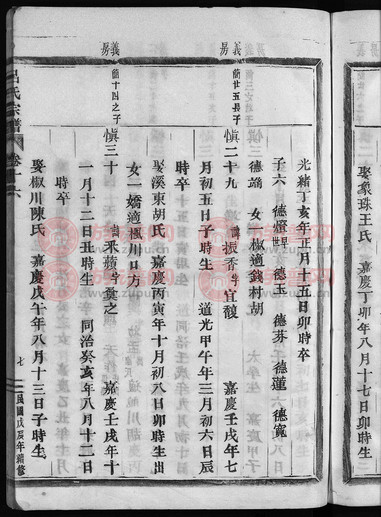 娶象珠王氏　嘉慶丁卯年八月十七日卯時生
光緒丁亥年正月十五日卯時卒
子六　德燈早世　德玉　德芬　德蓮　德寬
德端　女一椒適錢村胡
義房　蘭廿五長子　愼二十九　諱振香字宜馥　嘉慶壬戌年七
月初五日子時生　道光甲午年三月初六日辰
時卒
娶溪東胡氏　嘉慶丙寅年十月初八日卯時生出
女一嬌適楓川呂方
義房　蘭十四之子　愼三十　諱來蘋字奠之　嘉慶壬戌年十
一月十二日丑時生　同治癸亥年八月十二日
時卒
娶椒川陳氏　嘉慶戊午年八月十三日子時生
呂氏宗譜　卷十六　七　民國戊辰年續修